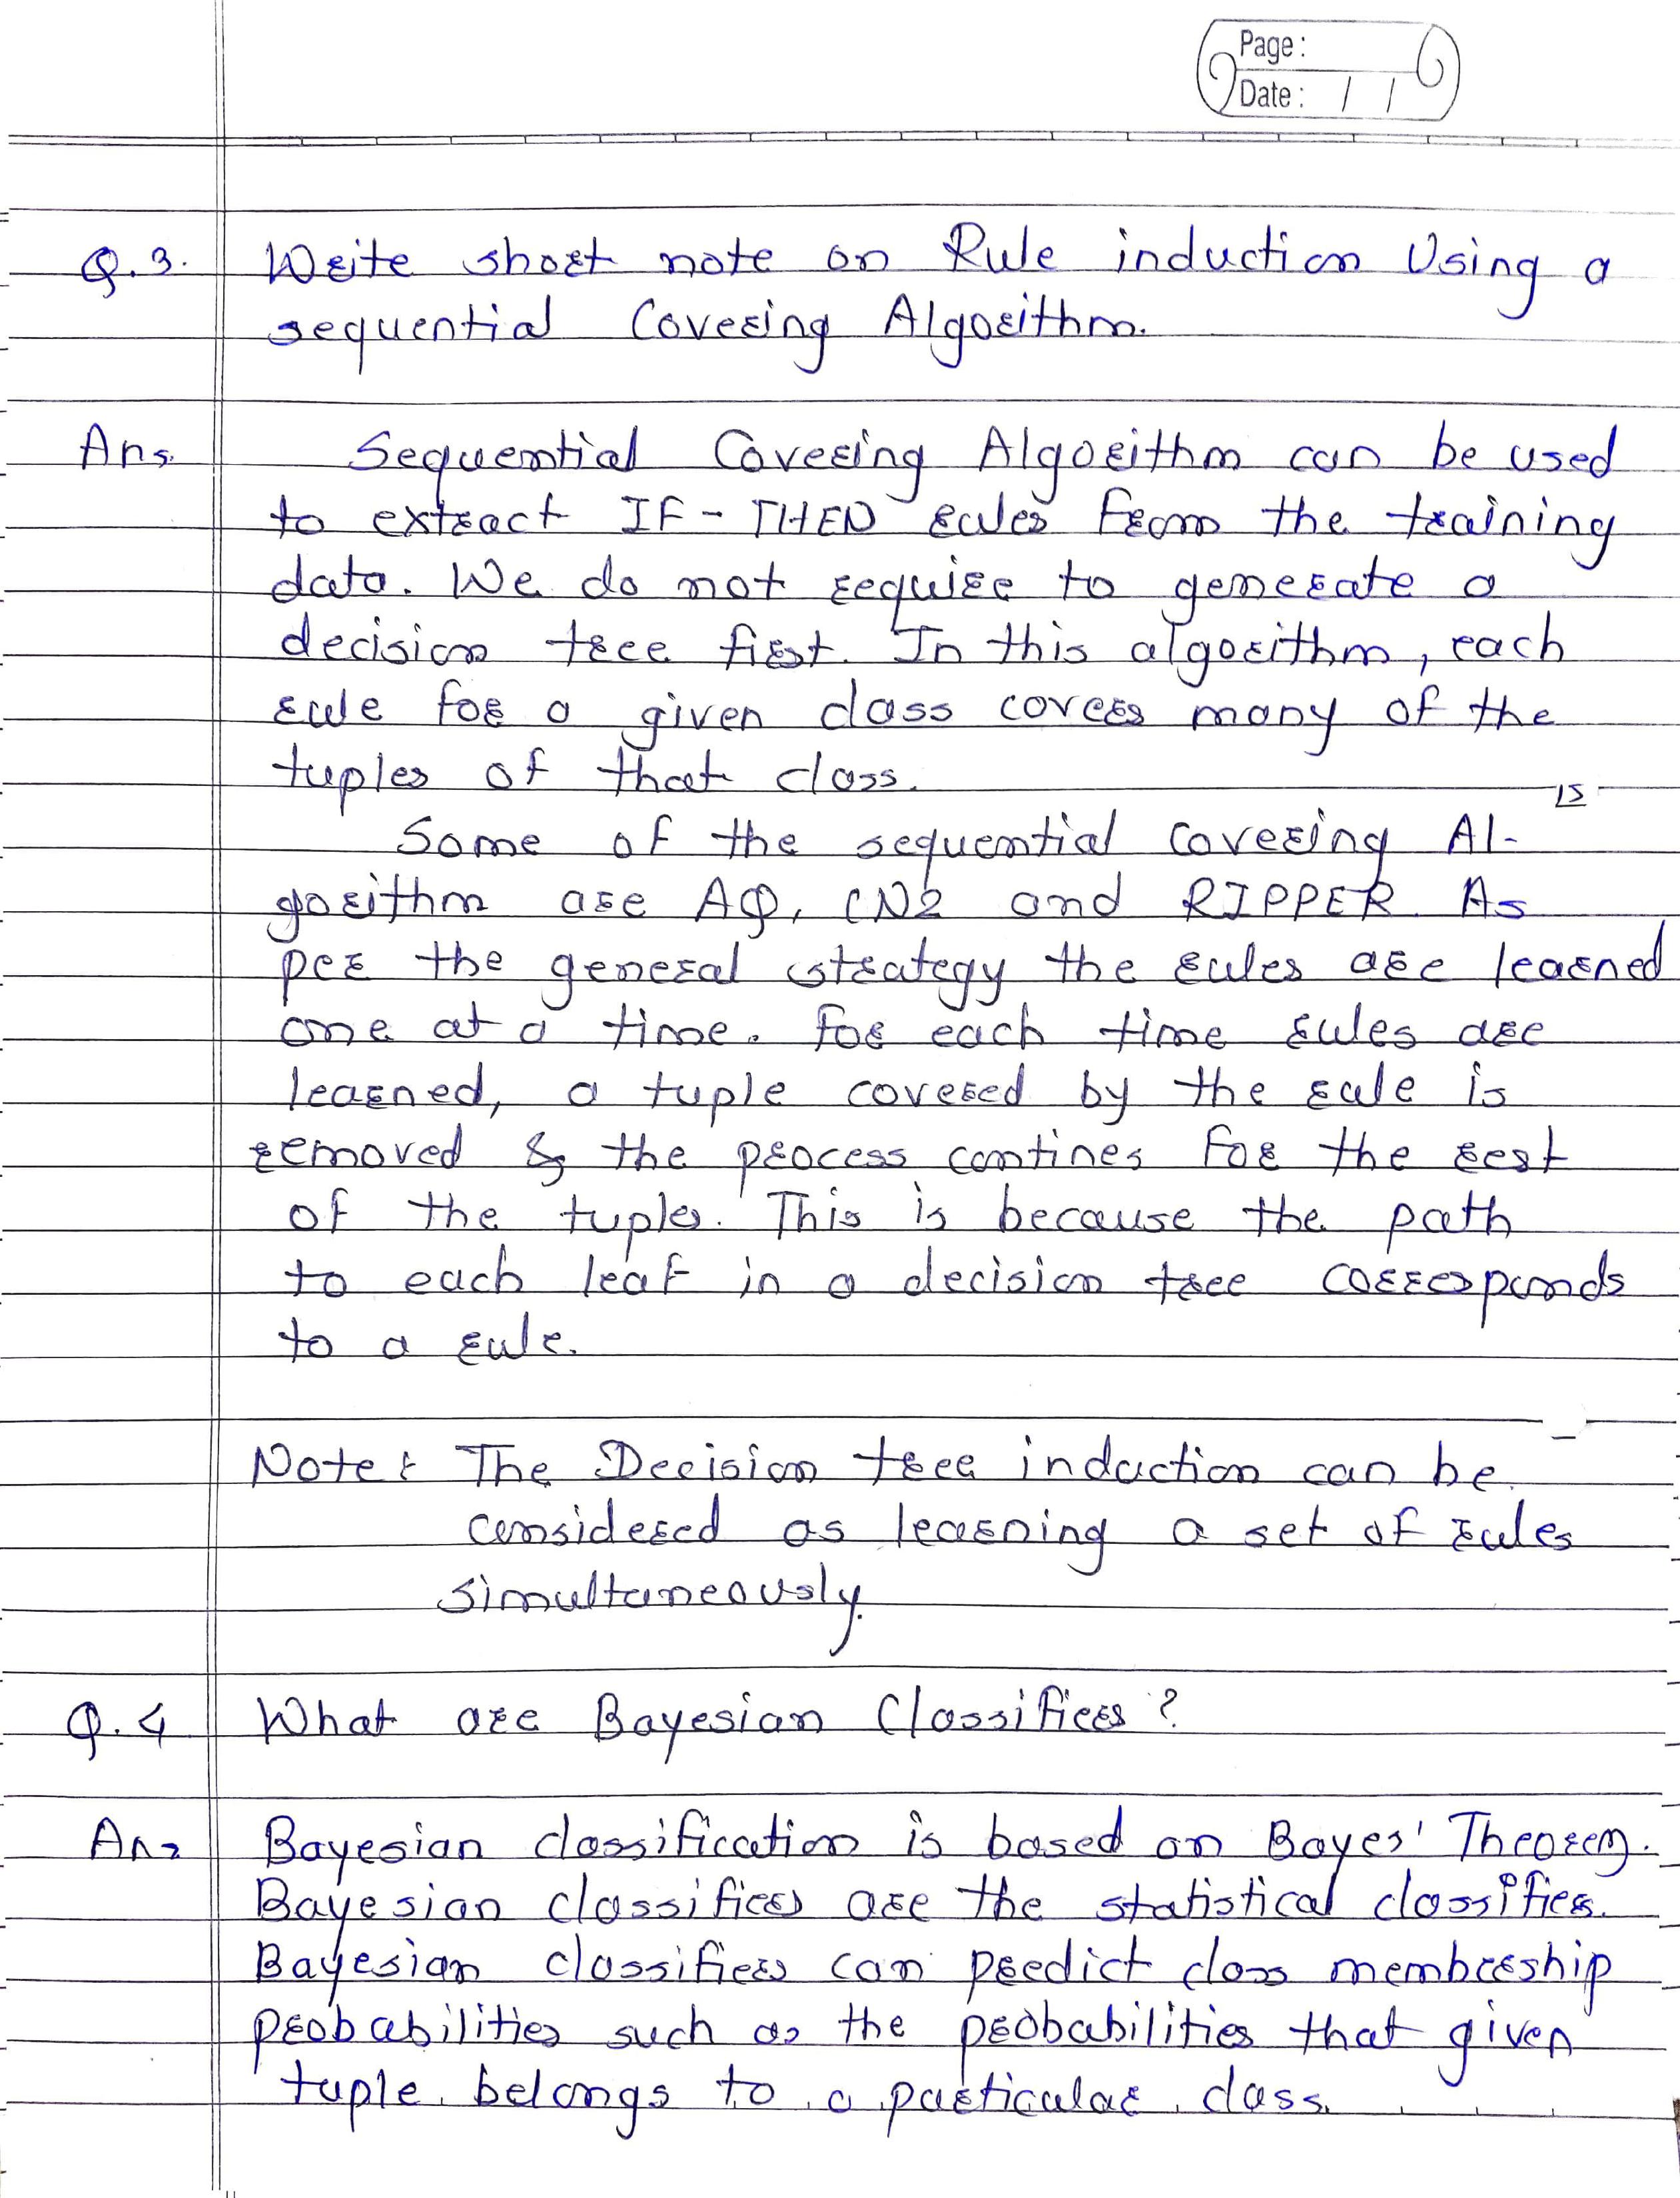 Page :
Date : / /
Q.3. Write short note on Rule induction Using a
sequential Covering Algorithm.
Ans. Sequential Covering Algorithm can be used
to extract IF - THEN rules from the training
data. We do not require to generate a
decision tree first. In this algorithm, each
rule for a given class covers many of the
tuples of that class.
Some of the sequential Covering Al-
gorithm are AQ, CN2 and RIPPER. As
per the general strategy the rules are learned
one at a time. For each time rules are
learned, a tuple covered by the rule is
removed & the process contines for the rest
of the tuples. This is because the path
to each leaf in a decision tree corresponds
to a rule.
Note : The Decision tree induction can be
considered as learning a set of rules
simultaneously.
Q.4 What are Bayesian Classifiers ?
Ans Bayesian classification is based on Bayes' Theorem.
Bayesian classifiers are the statistical classifiers.
Bayesian classifiers can predict class membership
probabilities such as the probabilities that given
tuple belongs to a particular class.